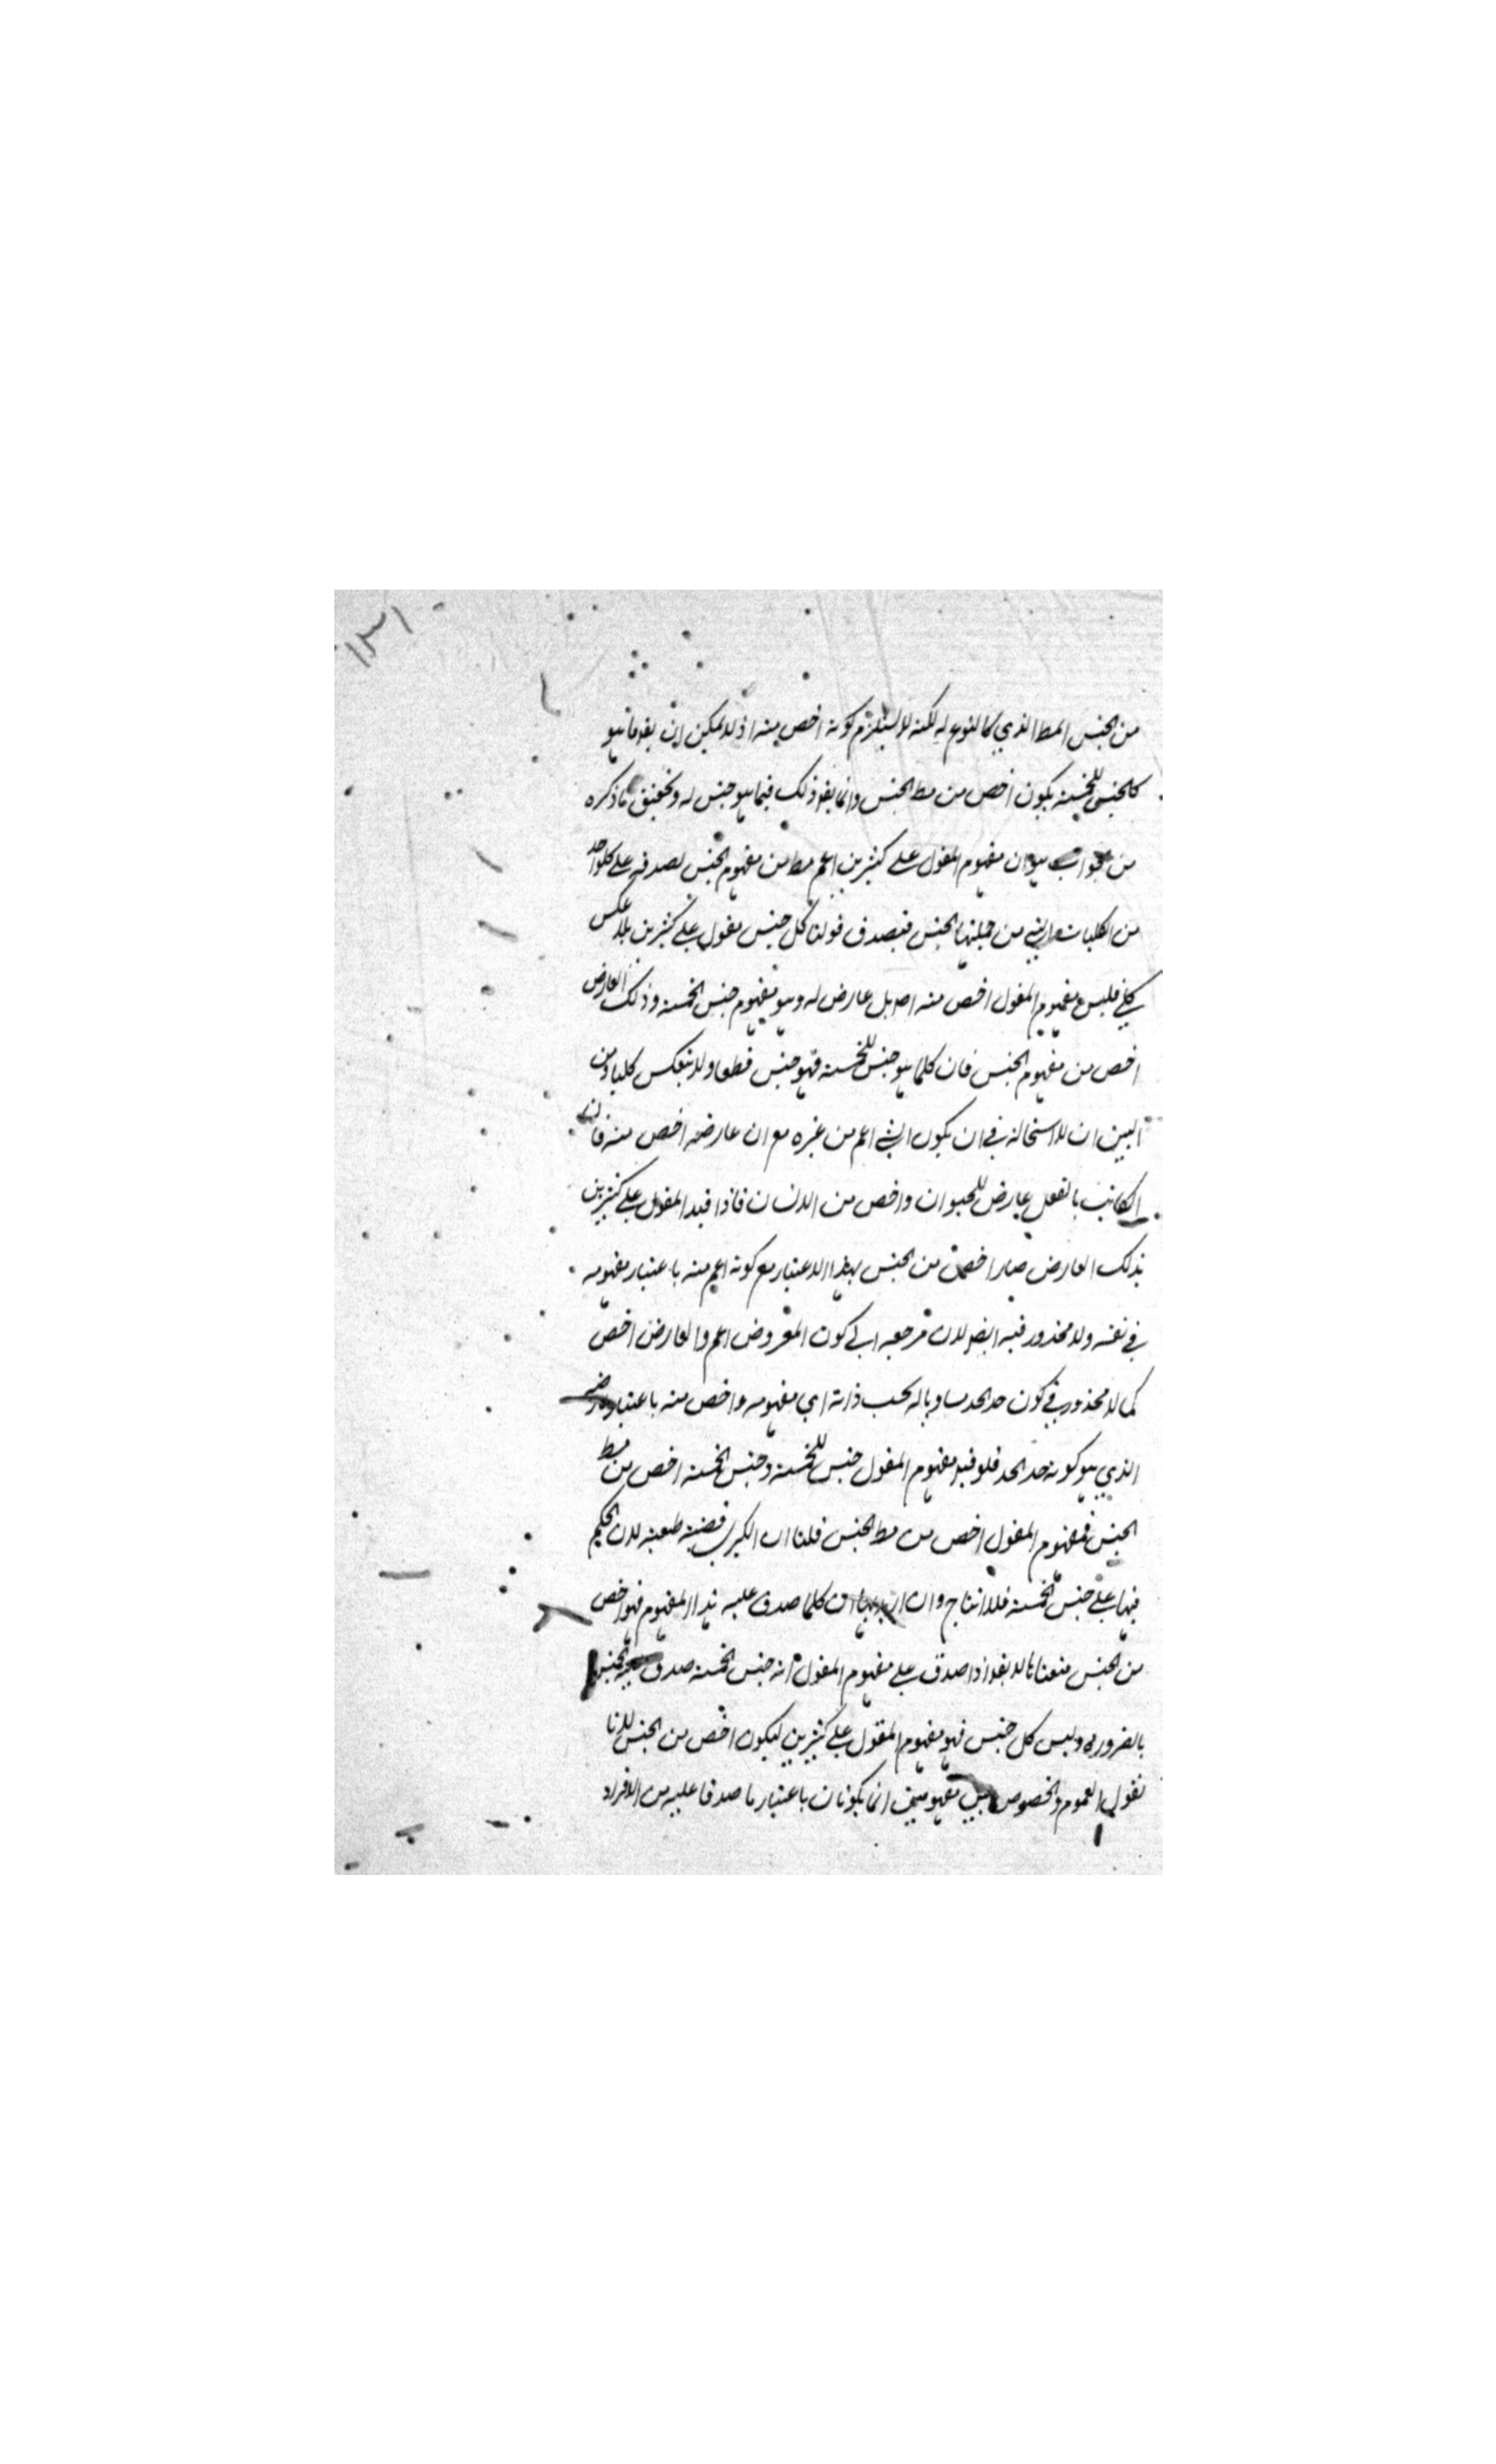 ١٣١
من الجنس المط الذي كالنوع له لكنه لا يستلزم كونه اخص منه اذ لا يمكن ان يقع ما هو
كالجنس للخمسة يكون اخص من مط الجنس وانما يقع ذلك فيما هو جنس له وتحقيق ما ذكره
من جواب هو ان مفهوم المقول على كثيرين اعم مط من مفهوم الجنس لصدقه على كل واحد
من الكليات التي من جملتها الجنس فيصدق قولنا كل جنس مقول على كثيرين بلا عكس
كلي فليس مفهوم المقول اخص منه اصلا بل عارض له وهو مفهوم جنس الخمسة وذلك العارض
اخص من مفهوم الجنس فان كلما هو جنس للخمسة فهو جنس قطعا ولا ينعكس كليا ومن
البين ان لا استحالة في ان يكون الشي اعم من غيره مع ان عارضه اخص منه فان
الكاتب بالفعل عارض للحيوان واخص من الانسان فاذا قيد المقول على كثيرين
بذلك العارض صار اخص من الجنس بهذا الاعتبار مع كونه اعم منه باعتبار مفهومه
في نفسه ولا محذور فيه ايض لان مرجعه الى كون المعروض اعم والعارض اخص
كما لا محذور في كون حد الحد مساويا له بحسب ذاته اي مفهومه واخص منه باعتبار عارضه
الذي هو كونه حد الحد فلو قيل مفهوم المقول جنس للخمسة وجنس الخمسة اخص من مط
الجنس فمفهوم المقول اخص من مط الجنس قلنا ان الكبرى قضية طبعية لان الحكم
فيها على جنس الخمسة فلا انتاج وان اريد بها ان كلما صدق عليه هذا المفهوم فهو اخص
من الجنس منعناها لا يقال اذا صدق على مفهوم المقول انه جنس الخمسة صدق عليه الجنس
بالضرورة وليس كل جنس فهو مفهوم المقول على كثيرين ليكون اخص من الجنس لانا
نقول العموم والخصوص بين مفهومين انما يكونان باعتبار ما صدقا عليه من الافراد